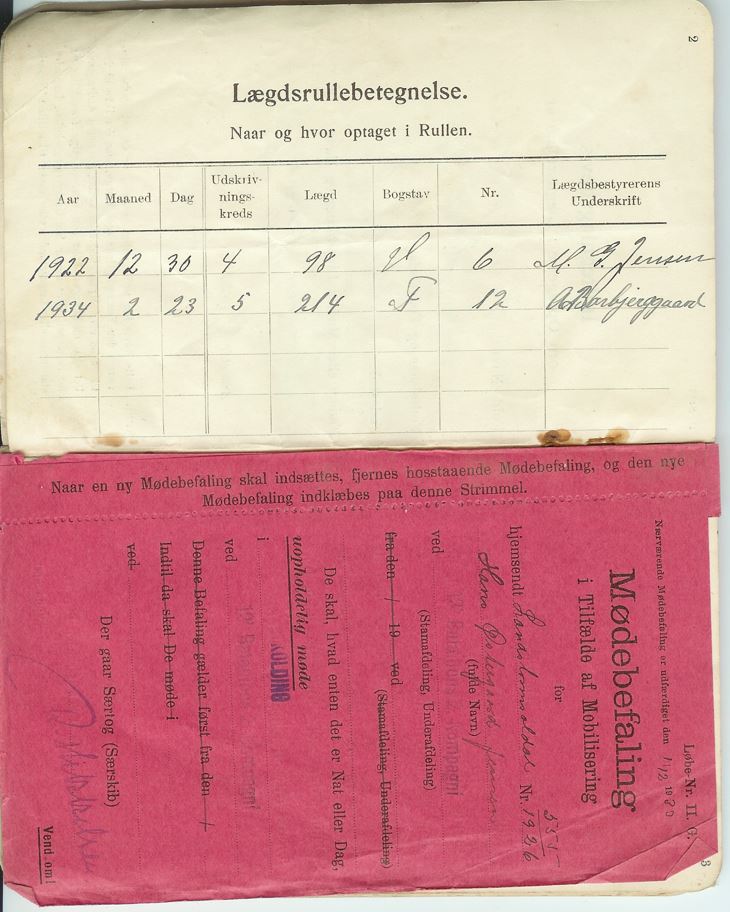 2
Lægdsrullebetegnelse.
Naar og hvor optaget i Rullen.
Aar Maaned Dag Udskriv-nings-kreds Lægd Bogstav Nr. Lægdsbestyrerens Underskrift
1922 12 30 4 98 6 M. G. Jensen
1934 2 23 5 214 F 12
Naar en ny Mødebefaling skal indsættes, fjernes hosstaaende Mødebefaling, og den nye
Mødebefaling indklæbes paa denne Strimmel.
3
Løbe-Nr. II. G.
Nærværende Mødebefaling er udfærdiget den 1/12 19
Mødebefaling
i Tilfælde af Mobilisering
for
hjemsendt Nr. 555 1926
Hans Jensen
(fulde Navn)
ved Bataillons Kompagni
(Stamafdeling, Underafdeling)
fra den / 19 ved
(Stamafdeling, Underafdeling)
De skal, hvad enten det er Nat eller Dag,
uopholdelig møde
i KOLDING
ved
Denne Befaling gælder først fra den
Indtil da skal De møde i
ved
Der gaar Særtog (Særskib)
Vend om!